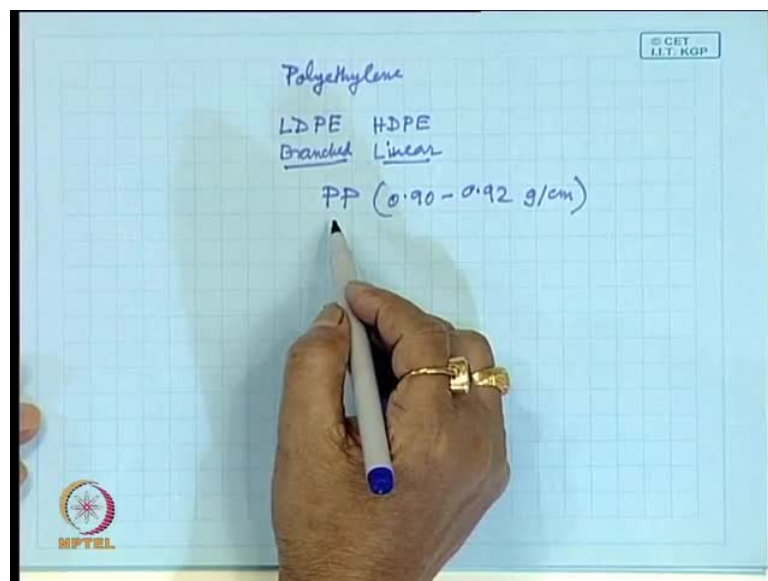 © CET
I.I.T. KGP
Polyethylene
LDPE HDPE
Branched Linear
PP (0.90 - 0.92 g/cm)
NPTEL